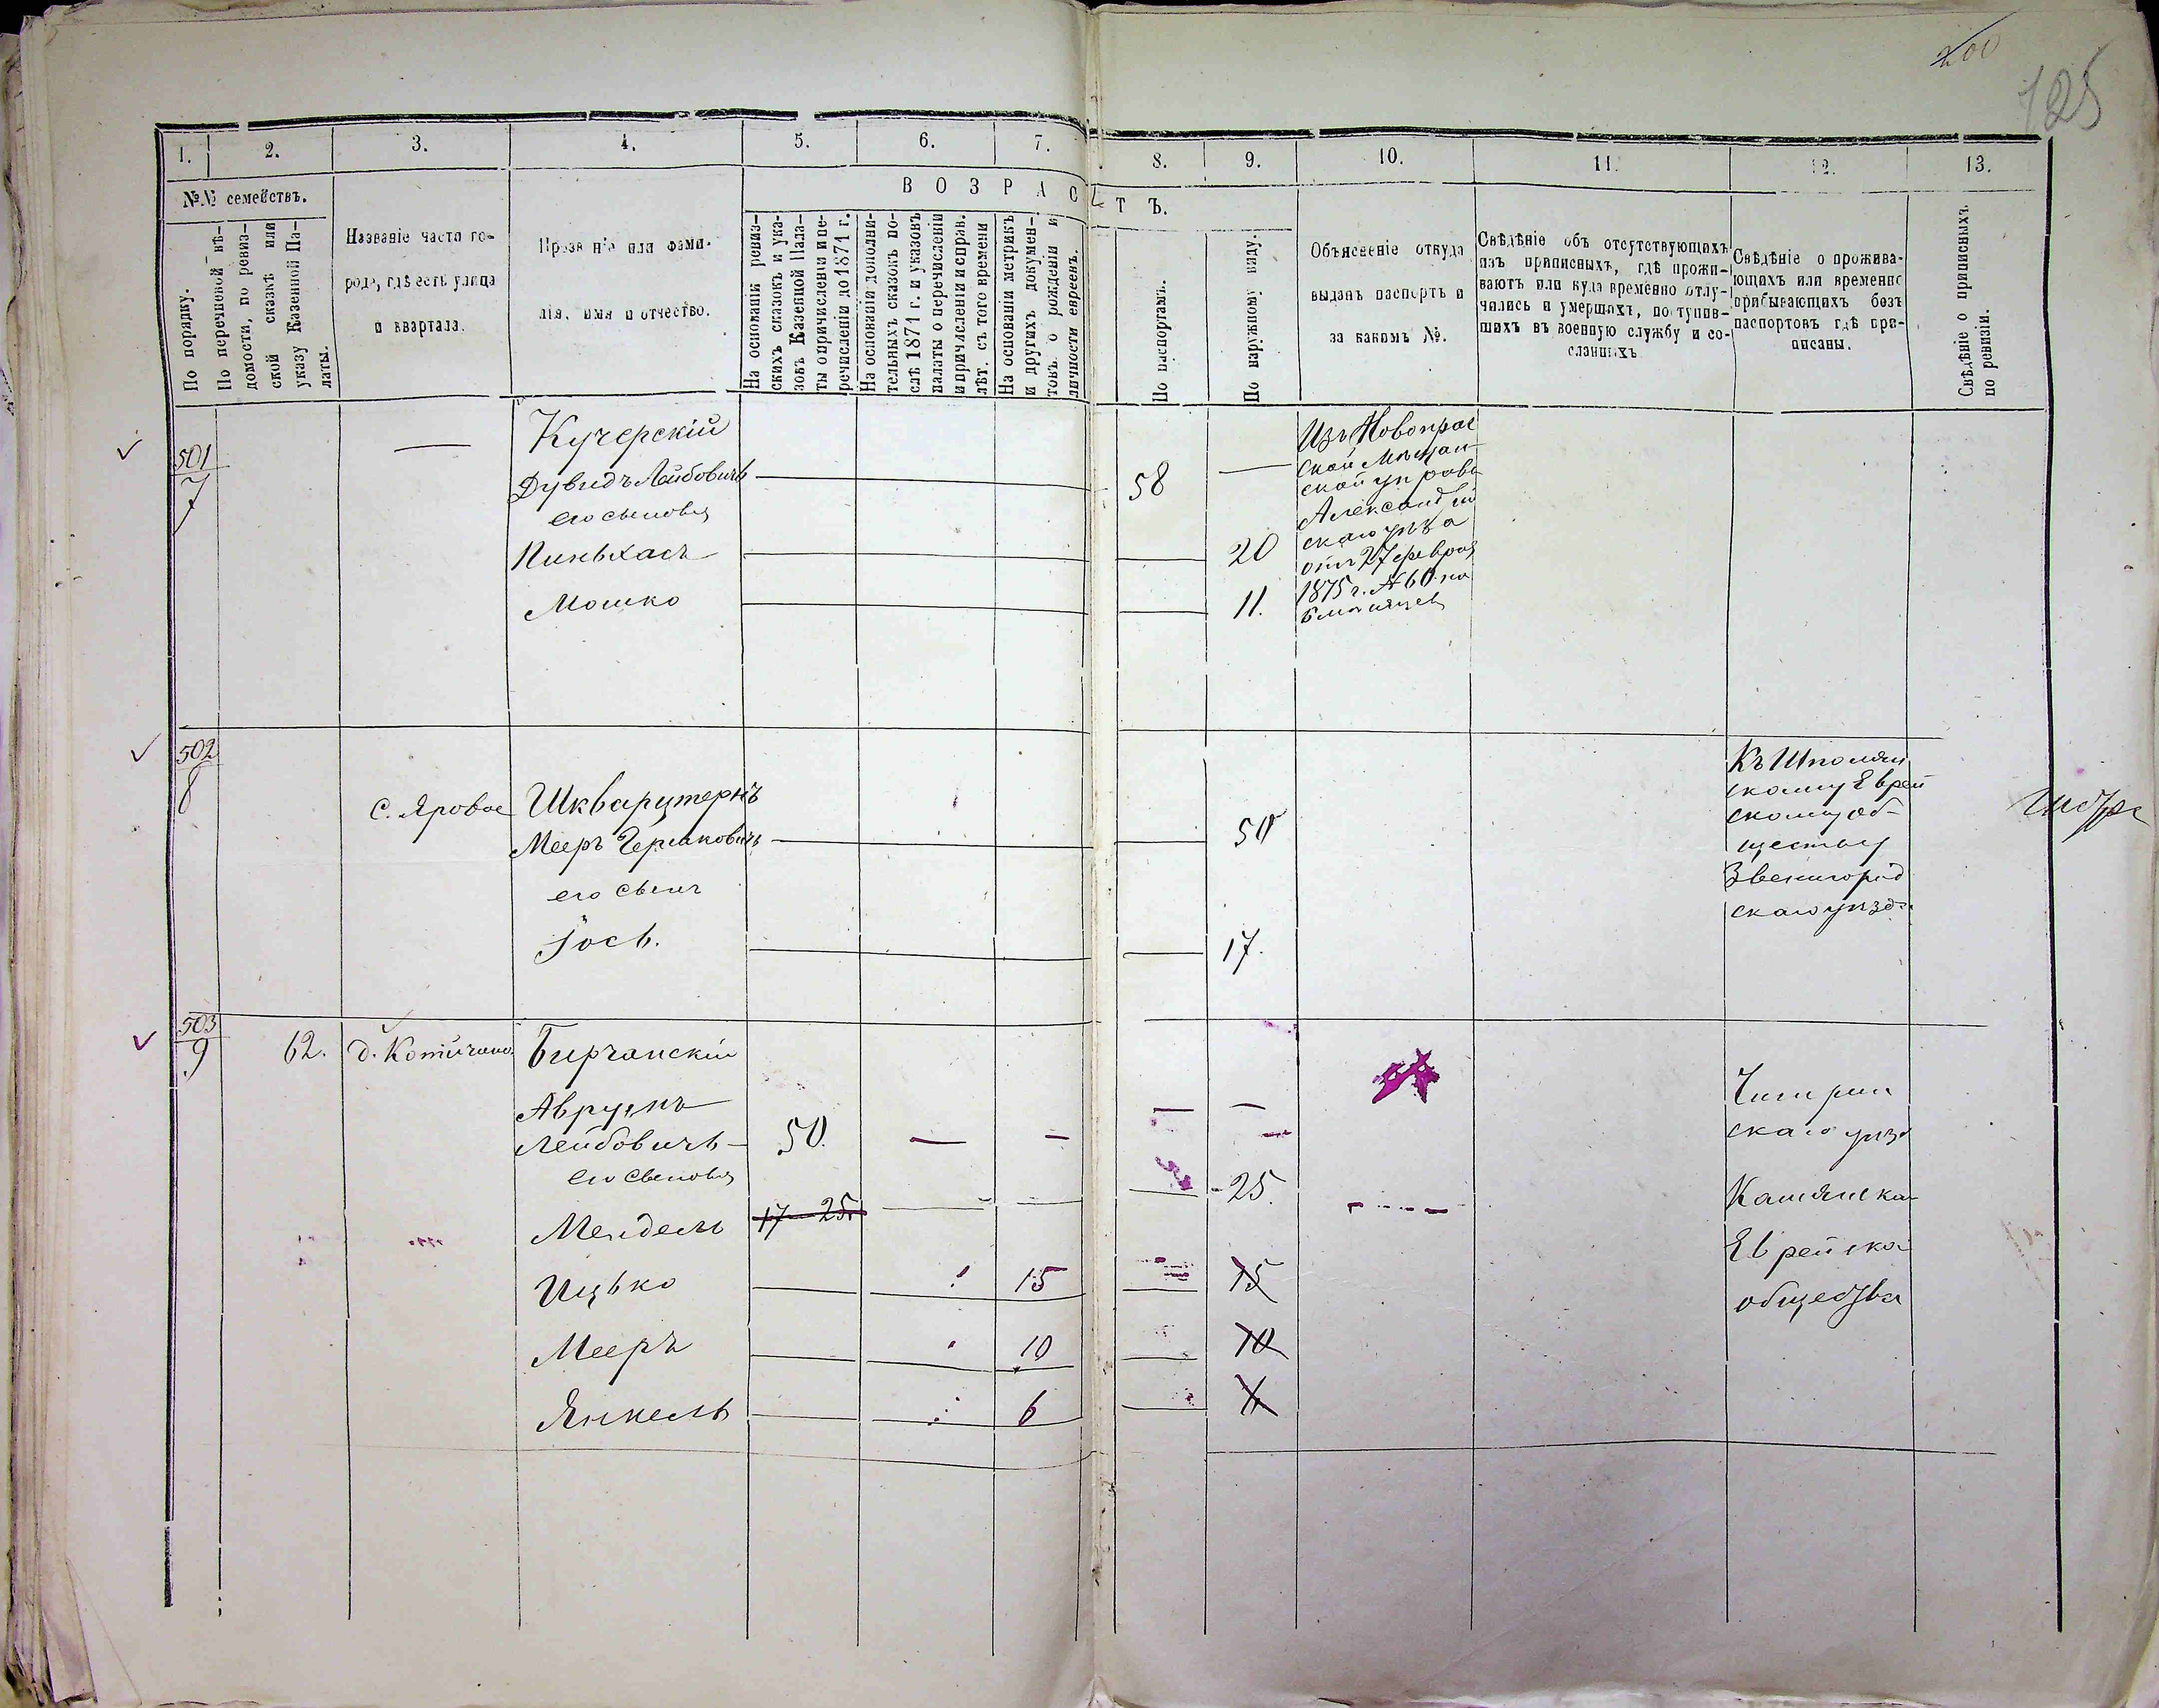 200
125
1. 2. 3. 4. 5. 6. 7. 8. 9. 10. 11. 12. 13.
№№ семействъ.
По порядку.
По перечневой вѣ-
домости, по ревиз-
ской сказкѣ или
указу Казенной Па-
латы.
Названіе части го-
рода, гдѣ есть улица
и квартала.
Прозваніе или фами-
лія, имя и отчество.
ВОЗРАСТЪ.
На основаніи ревиз-
скихъ сказокъ и ука-
зовъ Казенной Пала-
ты о причисленіи и пе-
речисленіи до 1871 г.
На основаніи дополни-
тельныхъ сказокъ по-
слѣ 1871 г. и указовъ
палаты о перечисленіи
и причисленіи и справ.
лѣт. съ того времени
На основаніи метрикъ
и другихъ докумен-
товъ о рожденіи и
личности евреевъ.
По паспортамъ.
По наружному виду.
Объясненіе откуда
выданъ паспортъ и
за какомъ №.
Свѣдѣніе объ отсутствующихъ
изъ приписныхъ, гдѣ прожи-
ваютъ или куда временно отлу-
чились и умершихъ, поступив-
шихъ въ военную службу и со-
сланныхъ
Свѣдѣніе о прожива-
ющихъ или временно
прибывающихъ безъ
паспортовъ гдѣ при-
писаны.
Свѣдѣніе о приписныхъ
по ревизіи.
501
7
— Кучерскій
Дувидъ Лейбовичъ — 58 —
его сыновья
Пиньхасъ — 20
Мошко — 11.
Изъ Новопраж
ской Мѣщан
ской управы
Александрій
скаго уѣзда
отъ 27 февраля
1875 г. № 60 на
6 мѣсяцев
502
8
С. Яровое Шкварцтернъ
Мееръ Гершковичъ — 50
его сынъ
Іось. — 17.
Къ Шполян
скому Еврей
скому об-
ществу
Звенигород
скаго уѣзда
503
9
62. д. Бирчанскій
Аврумъ
Лейбовичъ — 50. — —
его сыновья
Мендель 17 25. — — 25.
Ицько — 15 — 15
Мееръ — 10 — 10
Янкель — 6
Чигрин
скаго уѣзд
Камянска
Еврейска
общества